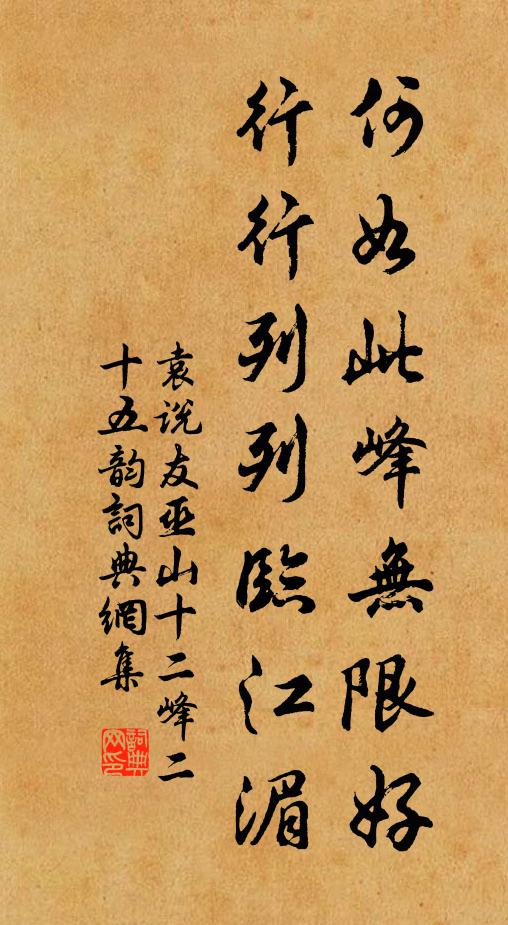 何如此峰無限好
行行列列臨江湄
袁说友巫山十二峰二
十五韵詞典網集
詞典
网印